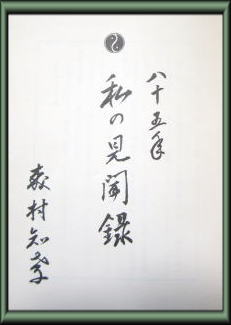 八十五年
私の見聞録
森村知孝